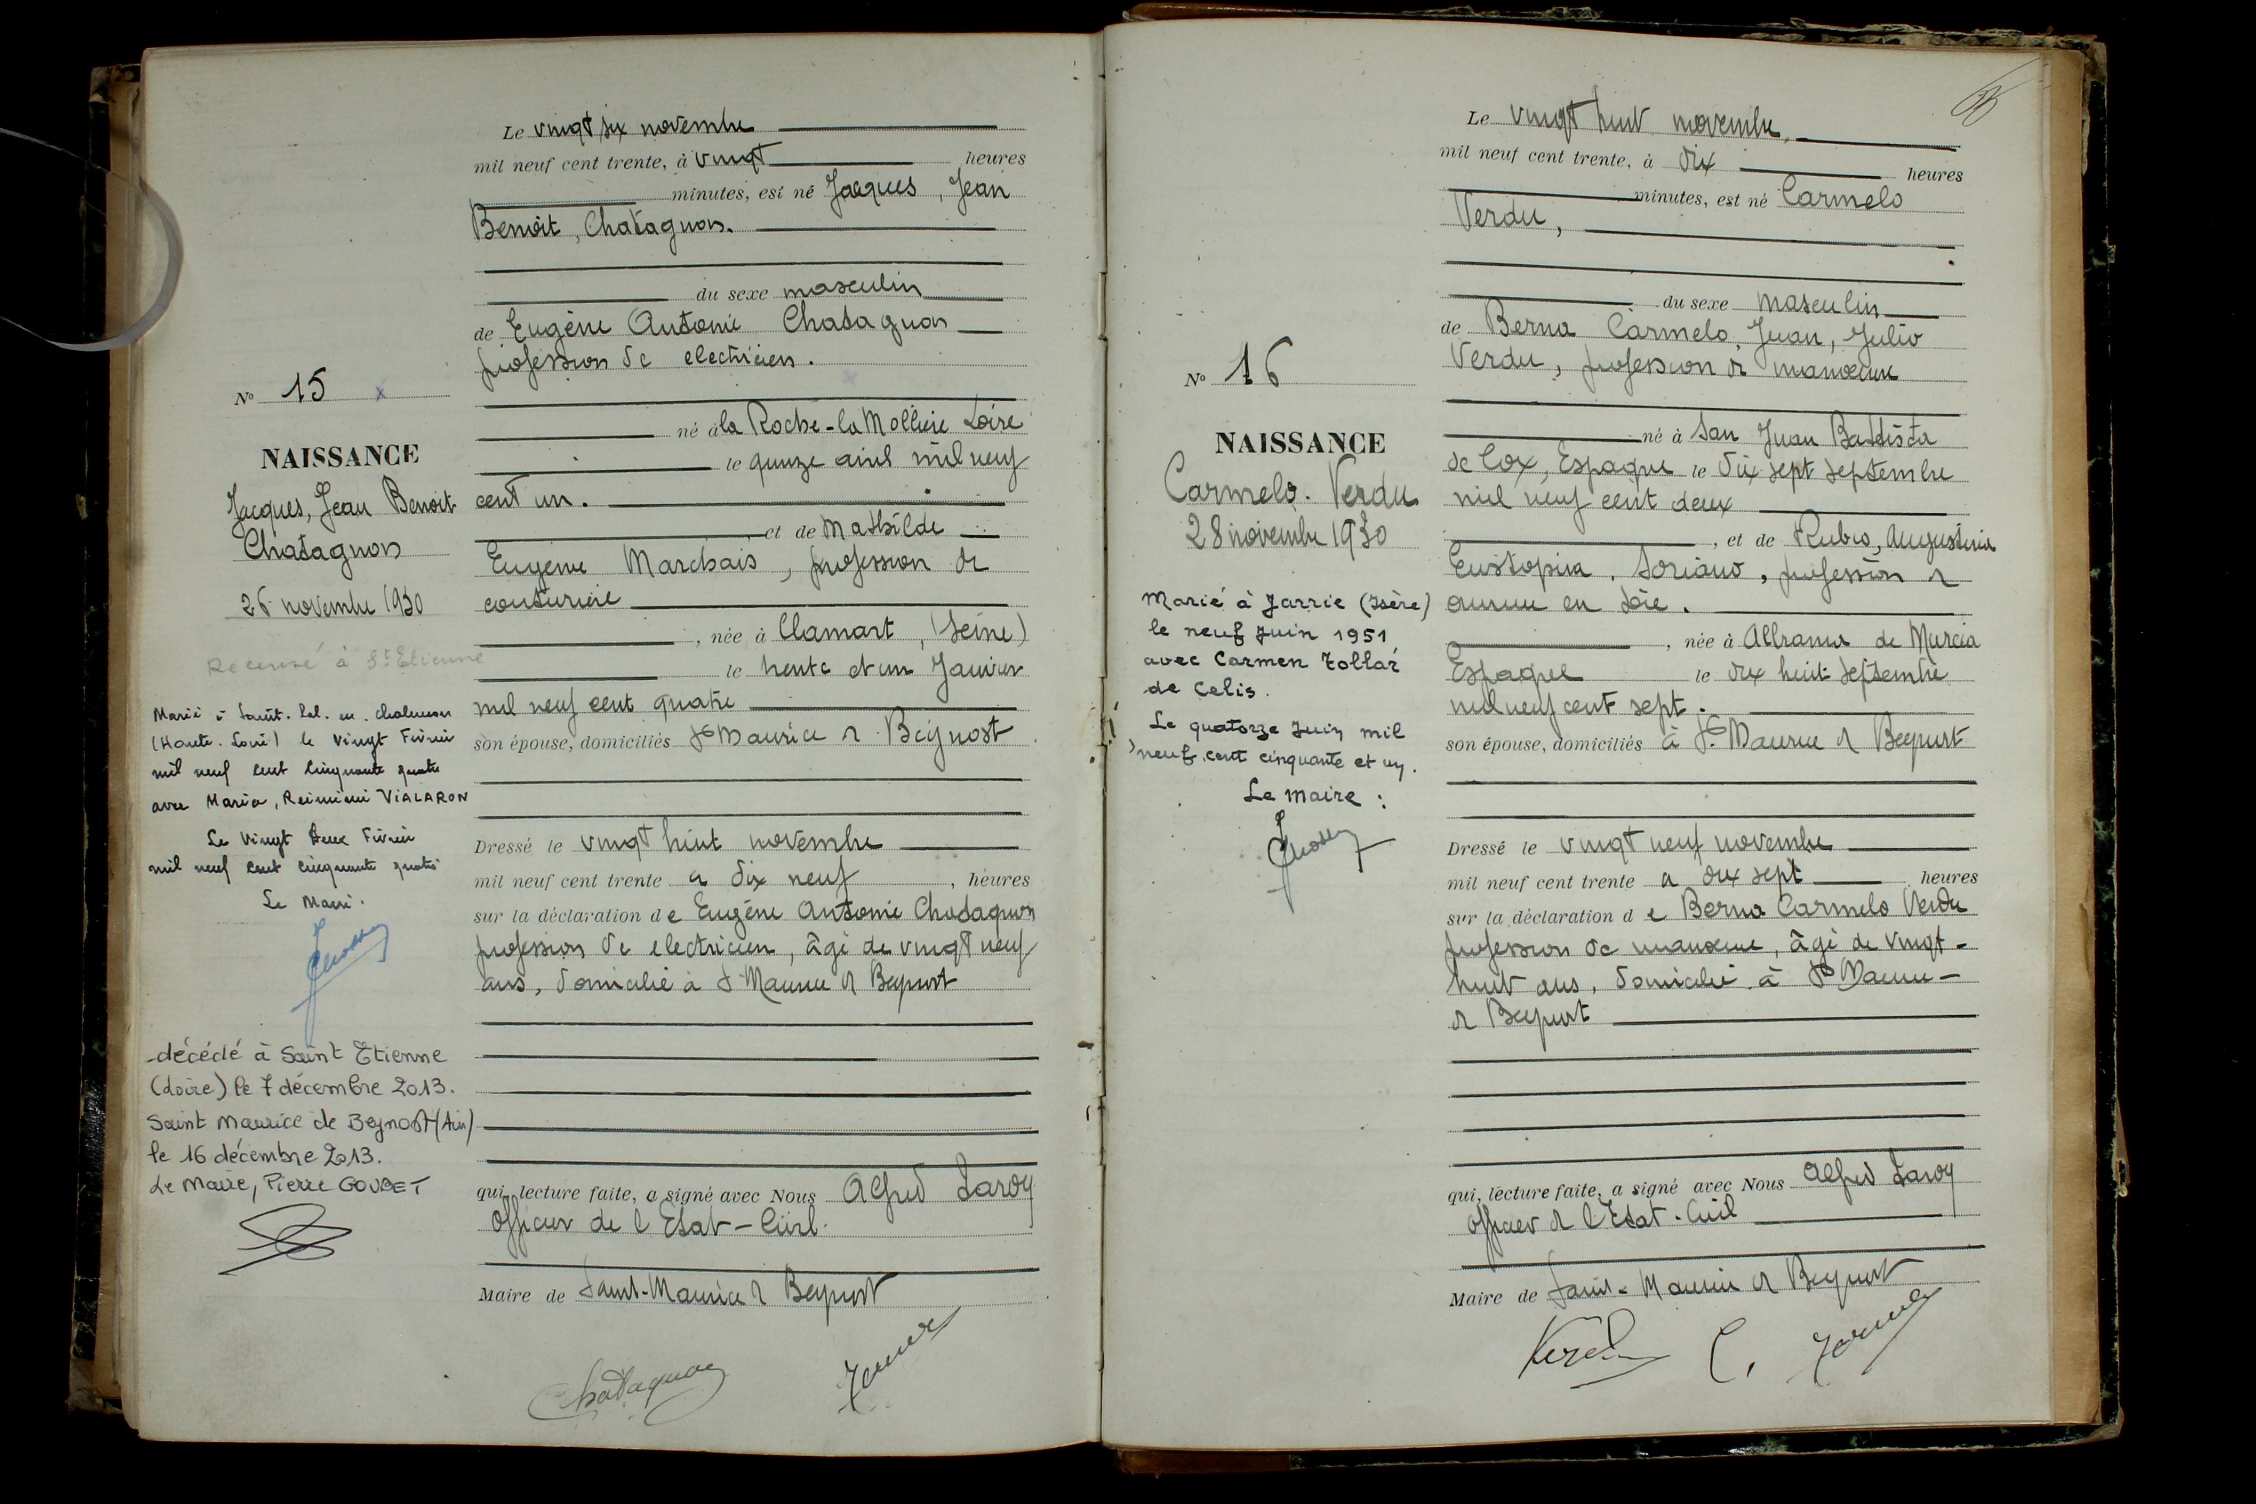 N° 15
NAISSANCE
Jacques, Jean Benoit
Chatagnon
26 novembre 1930
Recensé à St Etienne
Marié à Saint. Pal. en. Chalencon
(Haute. Loire) le vingt Février
mil neuf cent cinquante quatre
avec Maria, VIALARON
Le vingt deux Février
mil neuf cent cinquante quatre
Le Maire.
décédé à Saint Etienne
(Loire) le 7 décembre 2013.
Saint Maurice de Beynost (Ain)
le 16 décembre 2013.
Le Maire, Pierre GOUBET
Le vingt six novembre
mil neuf cent trente, à vingt heures
minutes, est né Jacques, Jean
Benoit, Chatagnon.
du sexe masculin
de Eugène Antonie Chatagnon
profession de electricien.
né à la Roche-la Molliere Loire
le quinze avril mil neuf
cent un.
et de Mathilde
Eugenie Marchais, profession de
couturière
, née à Clamart, (Seine)
le trente et un Janvier
mil neuf cent quatre
son épouse, domiciliés St Maurice de Beynost
Dressé le vingt huit novembre
mil neuf cent trente a dix neuf , heures
sur la déclaration de Eugène Antonie Chatagnon
profession de electricien, âgé de vingt neuf
ans, domicilié à St Maurice de Beynost
qui, lecture faite, a signé avec Nous Alfred Laroy
officier de l'Etat-Civil.
Maire de Saint-Maurice de Beynost
Chatagnon
N° 16
NAISSANCE
Carmelo. Verdu
28 novembre 1930
Marié à Jarrie (Isère)
le neuf Juin 1951
avec Carmen Tollar
de Celis.
Le quatorze Juin mil
neuf cent cinquante et un.
Le Maire :
Le vingt huit novembre,
mil neuf cent trente, à dix heures
minutes, est né Carmelo
Verdu,
du sexe masculin
de Berna Carmelo, Juan, Julio
Verdu, profession de manœuvre
né à San Juan Battista
de Cox, Espagne le dix sept septembre
mil neuf cent deux
, et de Rubio, Augustinia
Eustopina, Soriano, profession de
ouvrière en soie.
, née à Alhama de Murcia
Espagne le dix huit septembre
mil neuf cent sept.
son épouse, domiciliés à St Maurice de Beynost
Dressé le vingt neuf novembre
mil neuf cent trente a dix sept heures
sur la déclaration de Berna Carmelo Verdu
profession de manœuvre, âgé de vingt-
huit ans, domicilié à St Maurice-
de Beynost
qui, lecture faite, a signé avec Nous Alfred Laroy
officier de l'Etat-Civil
Maire de Saint-Maurice de Beynost
Verdu C.